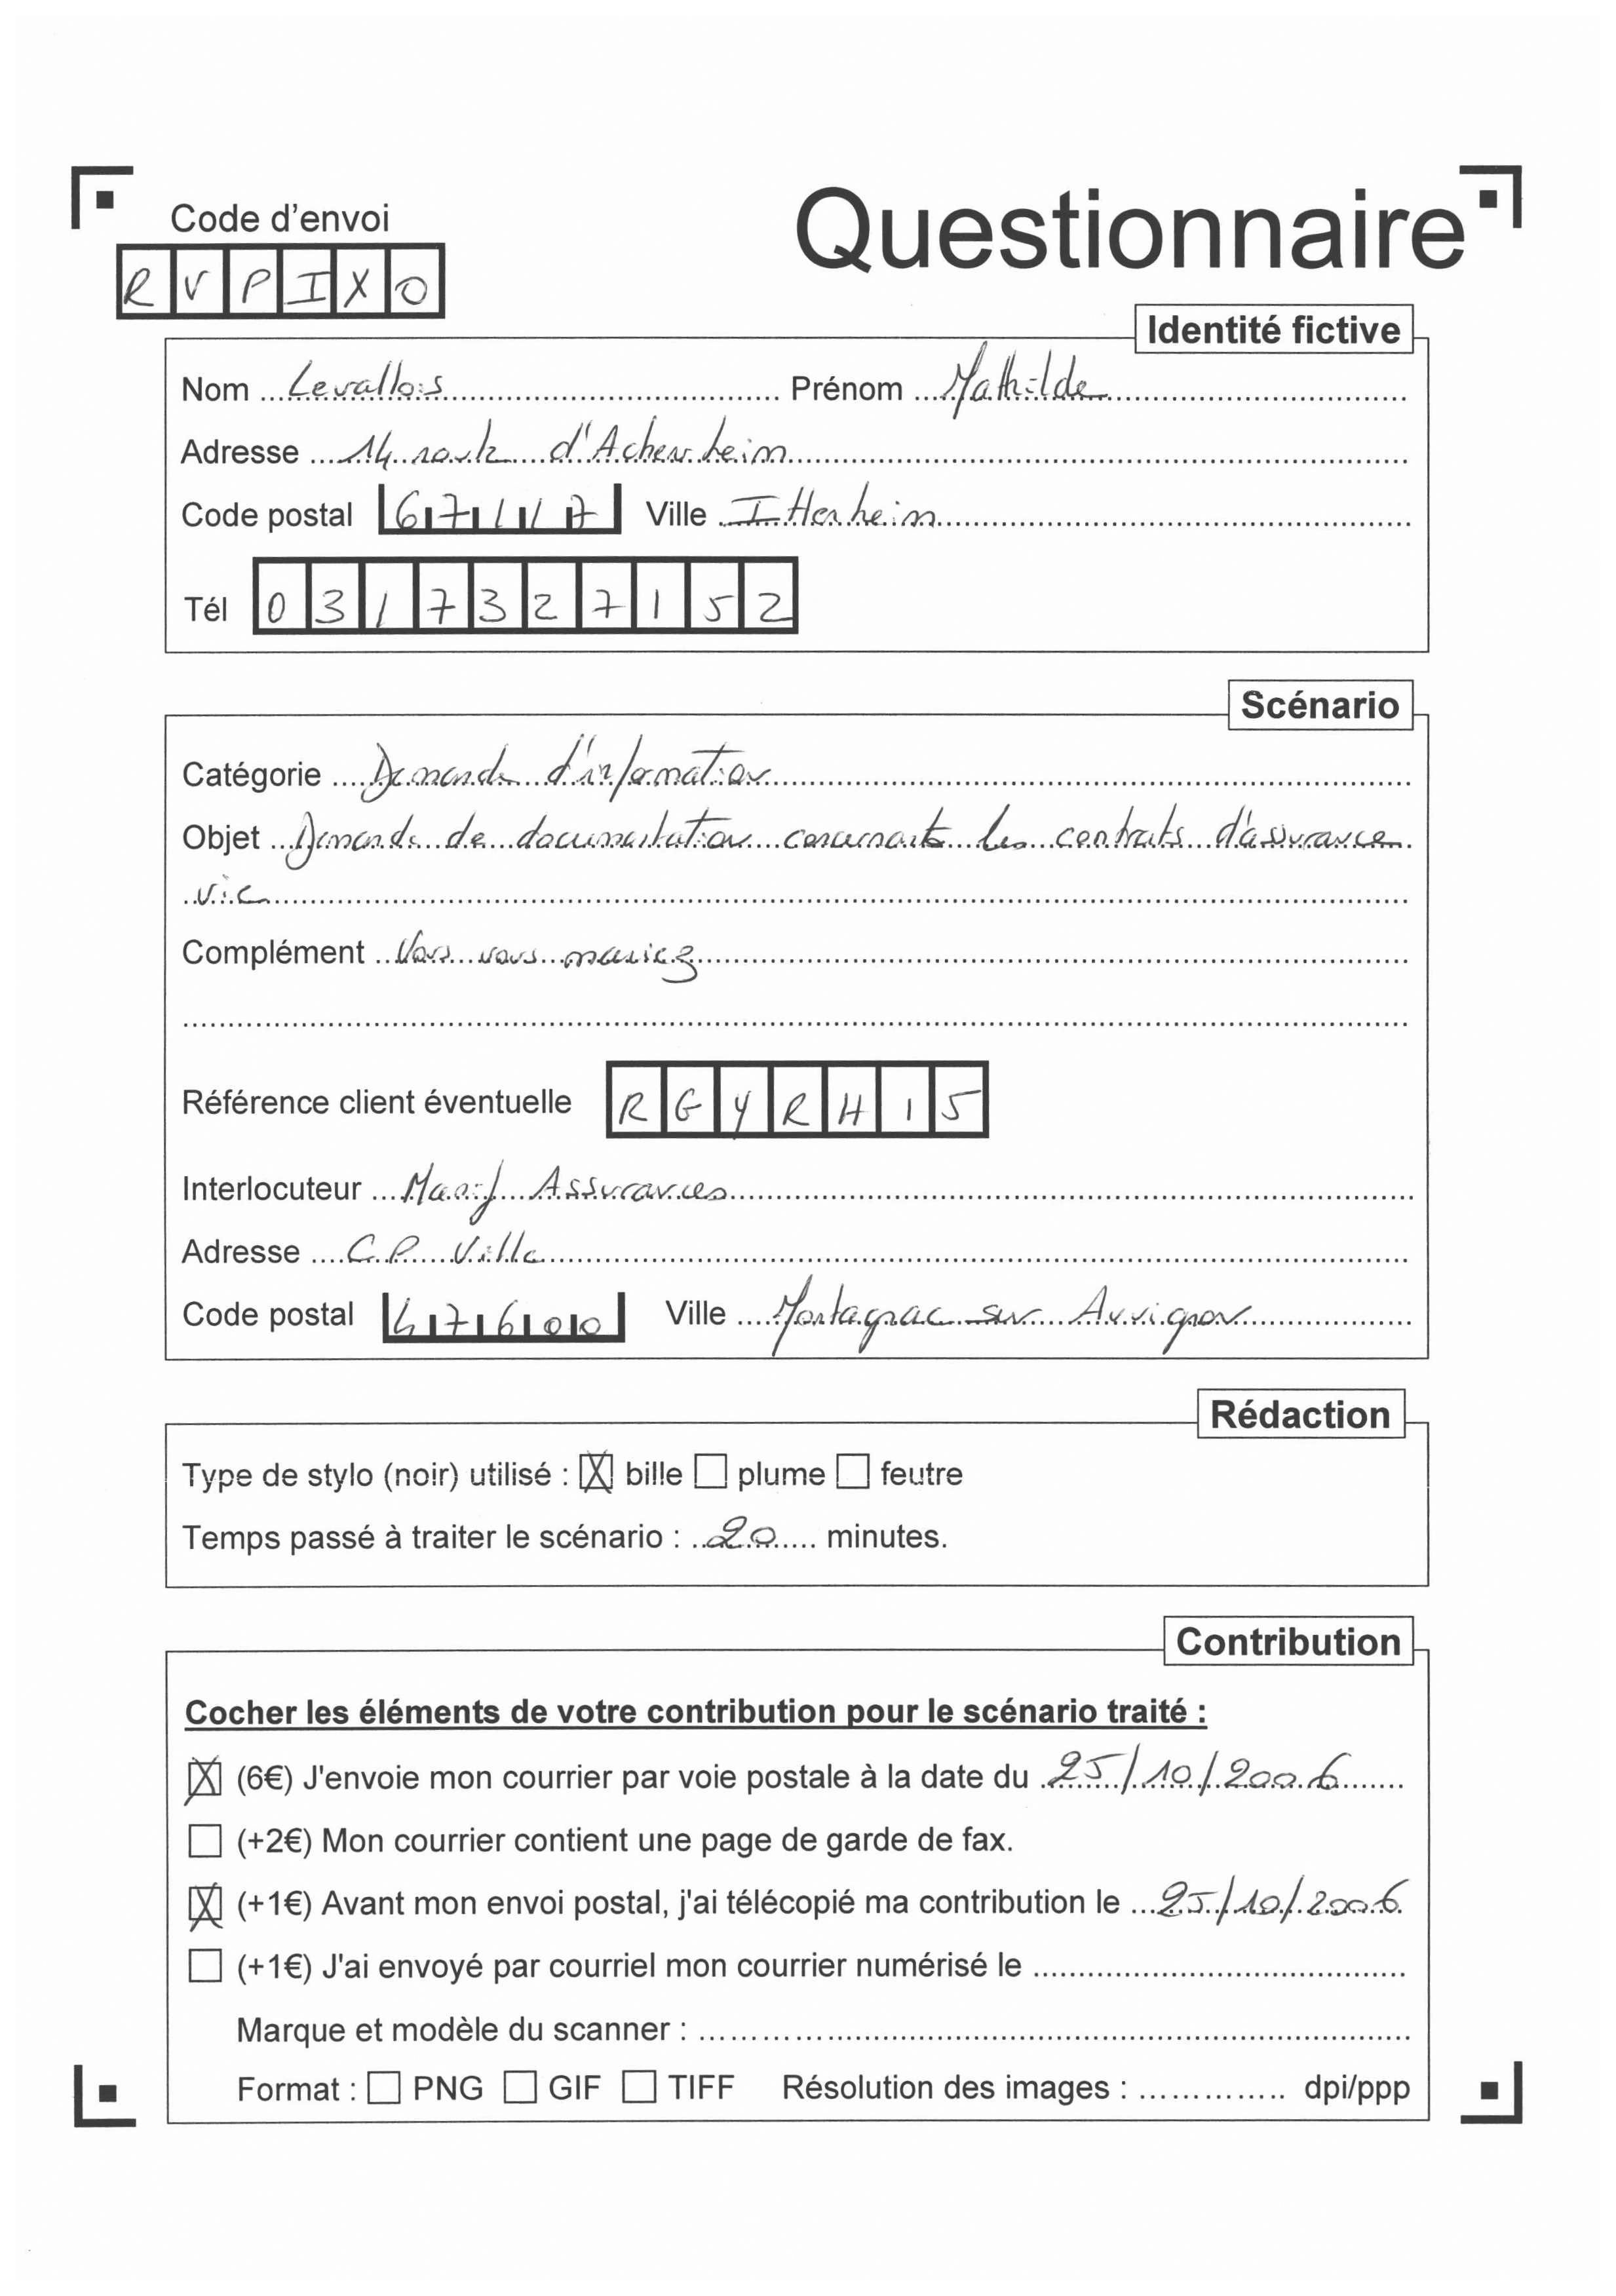 Code d'envoi
Questionnaire
RVPIXO
Identité fictive
Nom Levallois Prénom Mathilde
Adresse 14 route d'Achenheim
Code postal 67117 Ville Ittenheim
Tél 0317327152
Scénario
Catégorie Demande d'information
Objet Demande de documentation concernant les contrats d'assurance
vie
Complément Vous vous mariez
Référence client éventuelle RGYRH15
Interlocuteur Maaf Assurances
Adresse C.P. Ville
Code postal 47600 Ville Montagnac sur Auvignon
Rédaction
Type de stylo (noir) utilisé : ☒ bille ☐ plume ☐ feutre
Temps passé à traiter le scénario : 20 minutes.
Contribution
Cocher les éléments de votre contribution pour le scénario traité :
☒ (6€) J'envoie mon courrier par voie postale à la date du 25/10/2006
☐ (+2€) Mon courrier contient une page de garde de fax.
☒ (+1€) Avant mon envoi postal, j'ai télécopié ma contribution le 25/10/2006
☐ (+1€) J'ai envoyé par courriel mon courrier numérisé le
Marque et modèle du scanner :
Format : ☐ PNG ☐ GIF ☐ TIFF Résolution des images : dpi/ppp